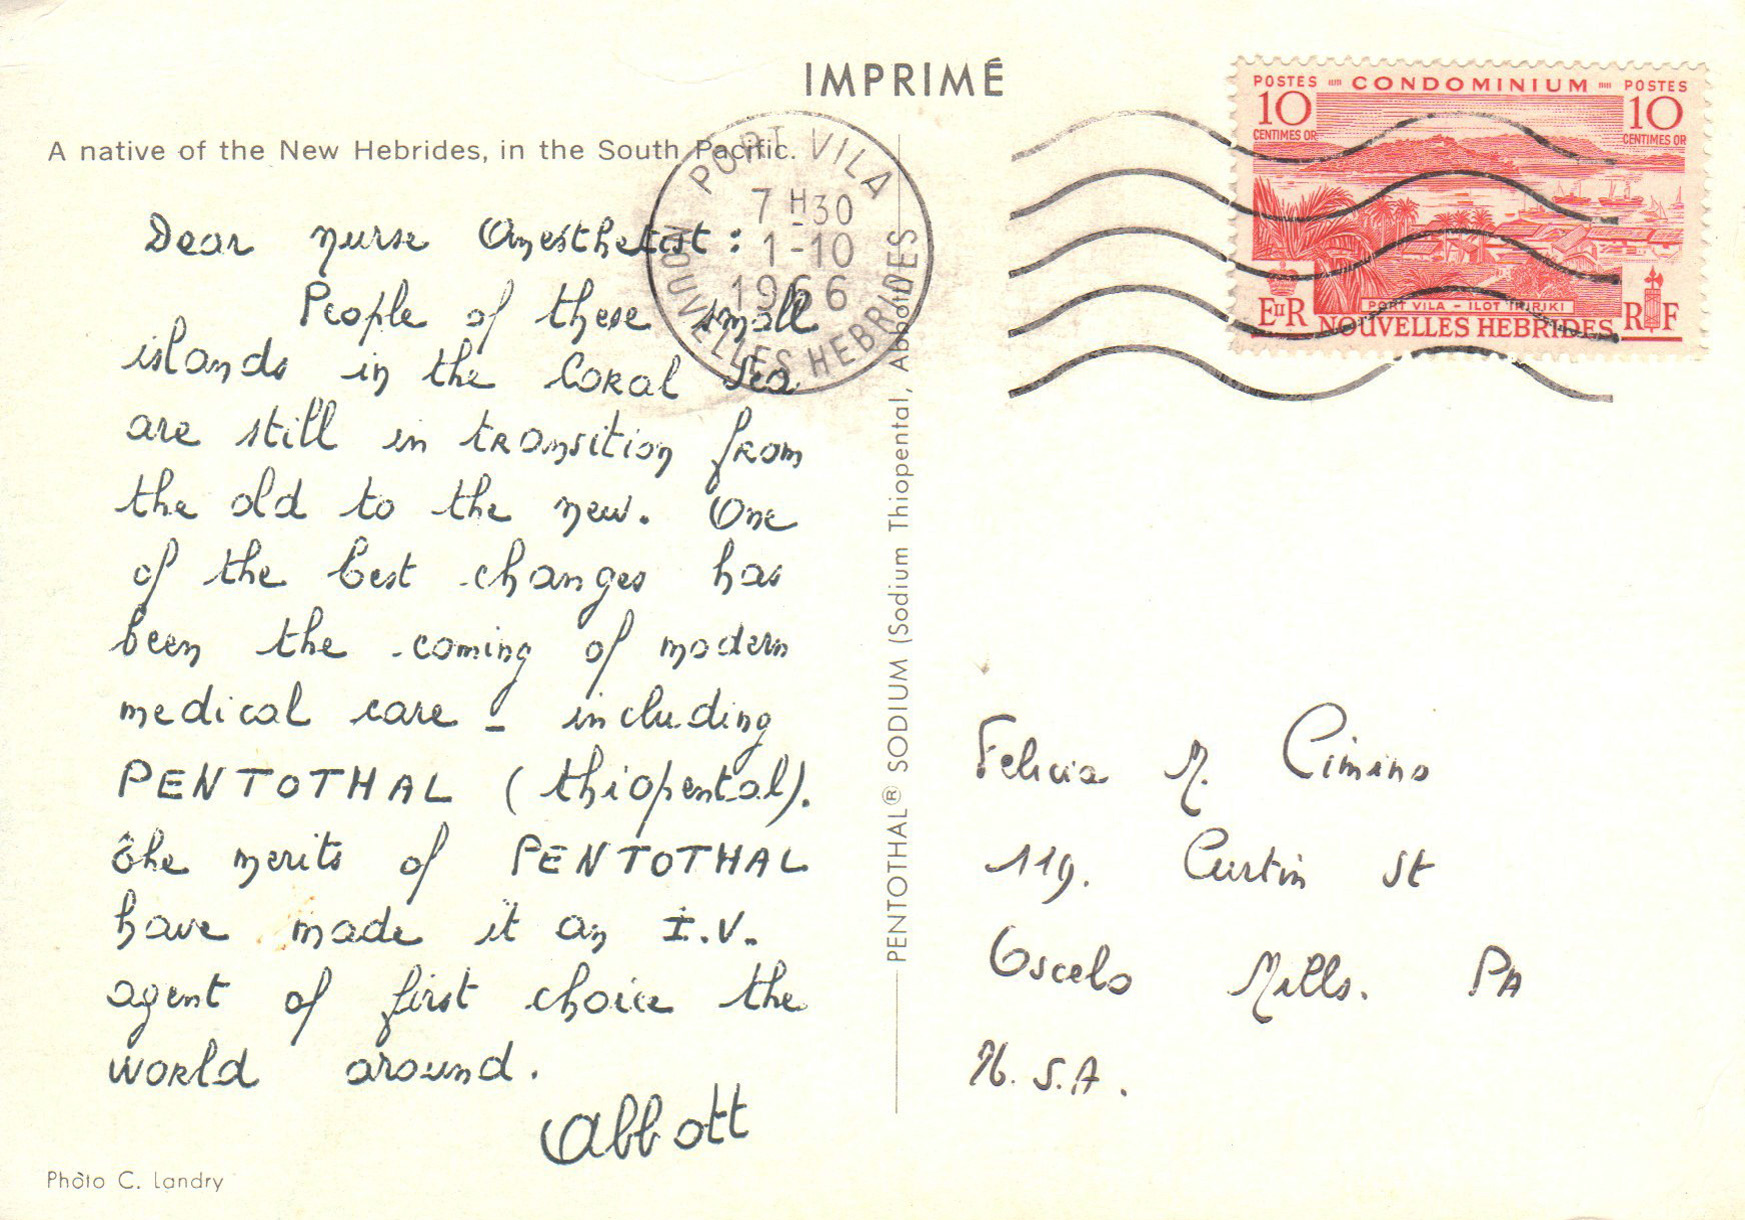 IMPRIMÉ
A native of the New Hebrides, in the South Pacific.
Dear nurse Anesthetist:
People of these small
islands in the Coral Sea
are still in transition from
the old to the new. One
of the best changes has
been the coming of modern
medical care - including
PENTOTHAL (thiopental).
The merits of PENTOTHAL
have made it an I.V.
agent of first choice the
world around.
Abbott
Photo C. Landry
PORT VILA
7 H30
1-10
1966
NOUVELLES HEBRIDES
PENTOTHAL® SODIUM (Sodium Thiopental, Abbott)
POSTES CONDOMINIUM POSTES
10 10
CENTIMES OR CENTIMES OR
PORT VILA - ILOT IRIRIKI
EIIR NOUVELLES HEBRIDES RF
Felicia M. Cimino
119. Curtin St
Oscelo Mills. PA
U.S.A.